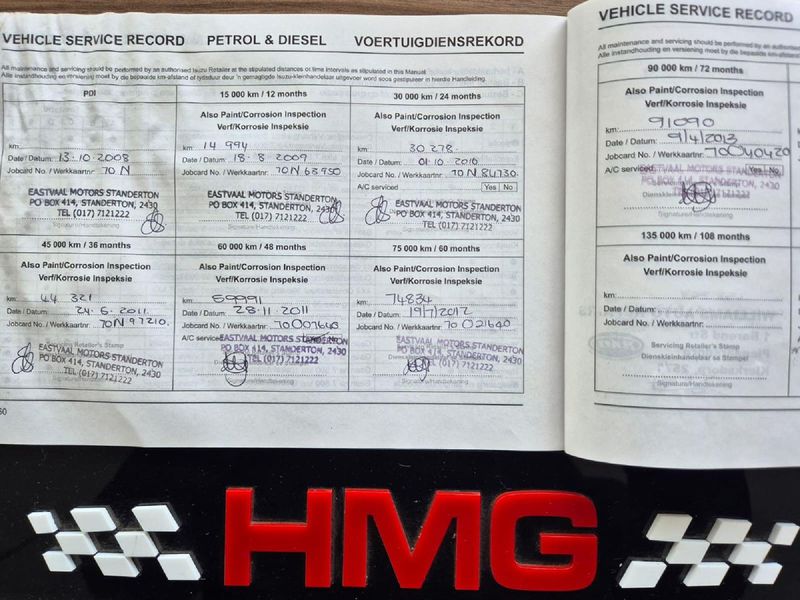 VEHICLE SERVICE RECORD PETROL & DIESEL VOERTUIGDIENSREKORD
All maintenance and servicing should be performed by an authorised Isuzu Retailer at the stipulated distances or time intervals as stipulated in this Manual
Alle instandhouding en versiening moet by die bepaalde km-afstand of tydsduur deur 'n gemagtigde Isuzu-kleinhandelaar uitgevoer word soos gestipuleer in hierdie Handleiding.
PDI
km:
Date / Datum: 13.10.2008
Jobcard No. / Werkkaartnr: 70 N
EASTVAAL MOTORS STANDERTON
PO BOX 414, STANDERTON, 2430
TEL (017) 7121222
15 000 km / 12 months
Also Paint/Corrosion Inspection
Verf/Korrosie Inspeksie
km: 14 994
Date / Datum: 18.8.2009
Jobcard No. / Werkkaartnr: 70N 63950
EASTVAAL MOTORS STANDERTON
PO BOX 414, STANDERTON, 2430
TEL (017) 7121222
Signature/Handtekening
30 000 km / 24 months
Also Paint/Corrosion Inspection
Verf/Korrosie Inspeksie
km: 30 278
Date / Datum: 01.10.2010
Jobcard No. / Werkkaartnr: 70N 84730
A/C serviced Yes No
EASTVAAL MOTORS STANDERTON
PO BOX 414, STANDERTON, 2430
TEL (017) 7121222
45 000 km / 36 months
Also Paint/Corrosion Inspection
Verf/Korrosie Inspeksie
km: 44 321
Date / Datum: 24.6.2011
Jobcard No. / Werkkaartnr: 70N 97210
Retailer's Stamp
EASTVAAL MOTORS STANDERTON
PO BOX 414, STANDERTON, 2430
TEL (017) 7121222
60 000 km / 48 months
Also Paint/Corrosion Inspection
Verf/Korrosie Inspeksie
km: 59991
Date / Datum: 28.11.2011
Jobcard No. / Werkkaartnr: 70001640
A/C serviced
EASTVAAL MOTORS STANDERTON
PO BOX 414, STANDERTON, 2430
TEL (017) 7121222
Signature/Handtekening
75 000 km / 60 months
Also Paint/Corrosion Inspection
Verf/Korrosie Inspeksie
km: 74834
Date / Datum: 19/7/2012
Jobcard No. / Werkkaartnr: 70 021640
EASTVAAL MOTORS STANDERTON
PO BOX 414, STANDERTON, 2430
TEL (017) 7121222
Signature/Handtekening
60
VEHICLE SERVICE RECORD
All maintenance and servicing should be performed by an authorised
Alle instandhouding en versiening moet by die bepaalde km-afstand
90 000 km / 72 months
Also Paint/Corrosion Inspection
Verf/Korrosie Inspeksie
km: 91090
Date / Datum: 9/4/2013
Jobcard No. / Werkkaartnr: 70040420
A/C serviced Yes No
EASTVAAL MOTORS STANDERTON
PO BOX 414, STANDERTON, 2430
Signature/Handtekening
135 000 km / 108 months
Also Paint/Corrosion Inspection
Verf/Korrosie Inspeksie
km:
Date / Datum:
Jobcard No. / Werkkaartnr:
Servicing Retailer's Stamp
Dienskleinhandelaar se Stempel
Signature/Handtekening
HMG